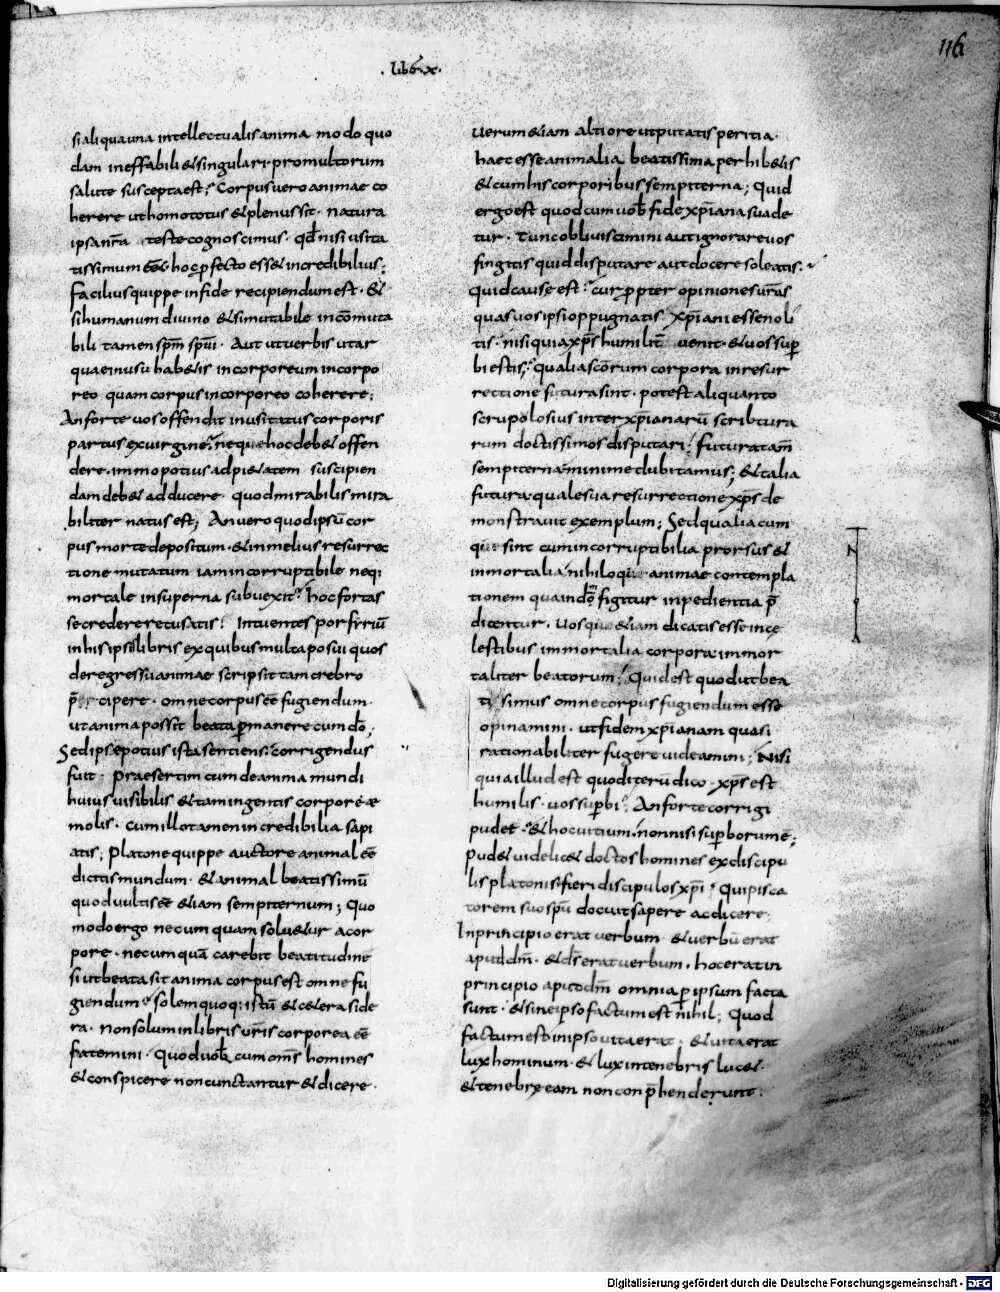 . lib̄ . x .
116
si aliqua una intellectualis anima modo quo
dam ineffabili & singulari . pro multorum
salute suscepta est ; Corpus uero animae co
herere ut homo totus & plenus sit . natura
ipsa nr̄a teste cognoscimus . qd̄ nisi usita
tissimum eēt hoc pfecto ess& incredibilius ;
facilius quippe in fide recipiendum est . &
si humanum diuino & si mutabile incōmuta
bili tamen spm̄ spūi . Aut ut uerbis utar
quae in usu hab&is incorporeum incorpo
reo quam corpus incorporeo coherere ;
An forte uos offendit inusitatus corporis
partus ex uirgine . neque hoc deb& offen
dere . immo potius ad pi&atem suscipien
dam deb& adducere . quod mirabilis mira
biliter natus est ; An uero quod ipsū cor
pus morte depositum . & in melius resurrec
tione mutatum iam incorruptibile neq;
mortale in superna subuexit . hoc fortas
se credere recusatis . Intuentes porfyriū
in his ipsis libris ex quibus multa posui quos
de regressu animae scripsit tam crebro
p̄cipere . omne corpus eē fugiendum .
ut anima possit beata pmanere cum dō ;
Sed ipse potius ista sentiens . corrigendus
fuit . praesertim cum de anima mundi
huius uisibilis & tam ingentis corporeae
molis . cum illo tam incredibilia sapi
atis ; Platone quippe auctore animal eē
dicitis mundum . & animal beatissimū
quod uultis eē & iam sempiternum ; Quo
modo ergo nec umquam solu&ur a cor
pore . nec umquā carebit beatitudine
si ut beata sit anima corpus est omne fu
giendum . solem quoq; istū & c&era side
ra . non solum in libris urīs corporea eē
fatemini . quod uob̄ cum om̄s homines
& conspicere non cunctantur & dicere .
uerum &iam altiore ut putatis peritia .
haec esse animalia beatissima perhib&is
& cum his corporibus sempiterna ; Quid
ergo est quod cum uob̄ fides xp̄iana suade
tur . tunc obliuiscimini aut ignorare uos
fingitis quid disputare aut docere soleatis .
quid causae est . cur ppter opiniones urās
quas uos ipsi oppugnatis xp̄iani esse noli
tis . nisi quia xp̄s humilit̄ uenit . & uos sup
bi estis . qualia scōrum corpora in resur
rectione futura sint . potest aliquanto
scrupolosius inter xp̄ianarū scribtura
rum doctissimos disputari . futura tam̄
sempiterna minime dubitamus ; & talia
futura quale sua resurrectione xp̄s de
monstrauit exemplum ; Sed qualiacum
que sint cum incorruptibilia prorsus &
inmortalia nihiloque animae contempla
tionem qua in dō figitur inpedientia p̄
dicentur . uosque &iam dicatis esse in ce
lestibus immortalia corpora immor
taliter beatorum ; Quid est quod ut bea
ti simus omne corpus fugiendum esse
opinamini . ut fidem xp̄ianam quasi
rationabiliter fugere uideamini ; Nisi
quia illud est quod iterū dico . xp̄s est
humilis . uos supbi . An forte corrigi
pudet . & hoc uitium . non nisi superborum ē ;
pud& uidelic& doctos homines ex discipu
lis platonis fieri discipulos xp̄i . Qui pisca
torem suo spū docuit sapere ac dicere ;
In principio erat uerbum & uerbū erat
apud dm̄ . & ds̄ erat uerbum . hoc erat in
principio aput dm̄ omnia p ipsum facta
sunt . & sine ipso factum est nihil ; Quod
factum est in ipso uita erat . & uita erat
lux hominum . & lux in tenebris luc&
& tenebrę eam non conp̄henderunt .
Digitalisierung gefördert durch die Deutsche Forschungsgemeinschaft - DFG